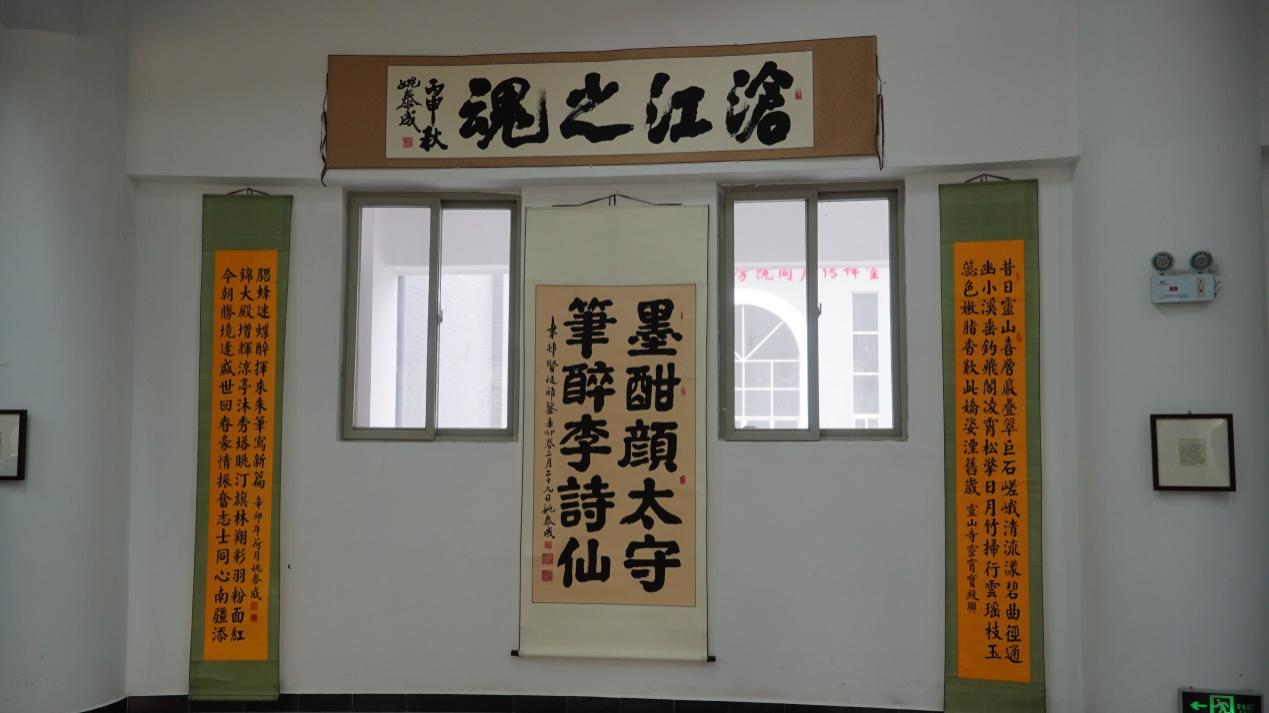 滄江之魂
丙申秋
姚泰成
昔日靈山喜層巖疊翠巨石嵯峨清流漾碧曲徑通
幽小溪垂釣飛閣凌霄松擎日月竹掃行雲瑤枝玉
蕊色嫩脂香歎此嬌姿湮舊歲
靈山寺靈霄寶殿聯
墨酣顔太守
筆醉李詩仙
賢徒雅鑒辛卯春二月二十九日姚泰成
今朝勝境逢盛世回春豪情振奮志士同心南疆添
錦大殿增輝涼亭沐秀塔眺汀旗林翔彩羽粉面紅
腮蜂迷蝶醉揮來朱筆寫新篇
辛卯年荷月姚泰成